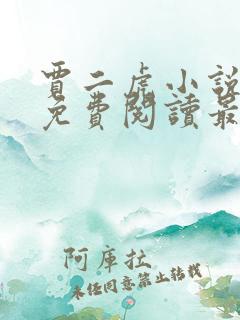 賈二虎小說
免費閱讀最
阿庫拉
未经同意禁止转载